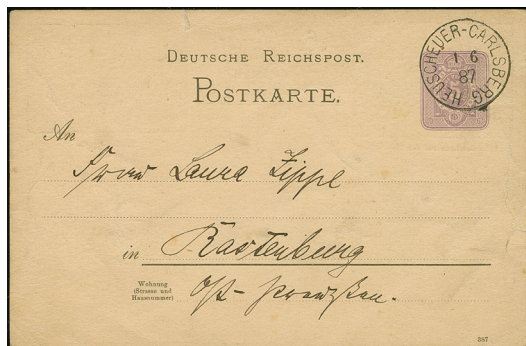 DEUTSCHE REICHSPOST.
POSTKARTE.
HEUSCHEUER-CARLSBERG
1 6
87
An
Frau Laura Zippel
in Rastenburg
Wohnung
(Strasse und
Hausnummer)
Ost-Preußen.
387